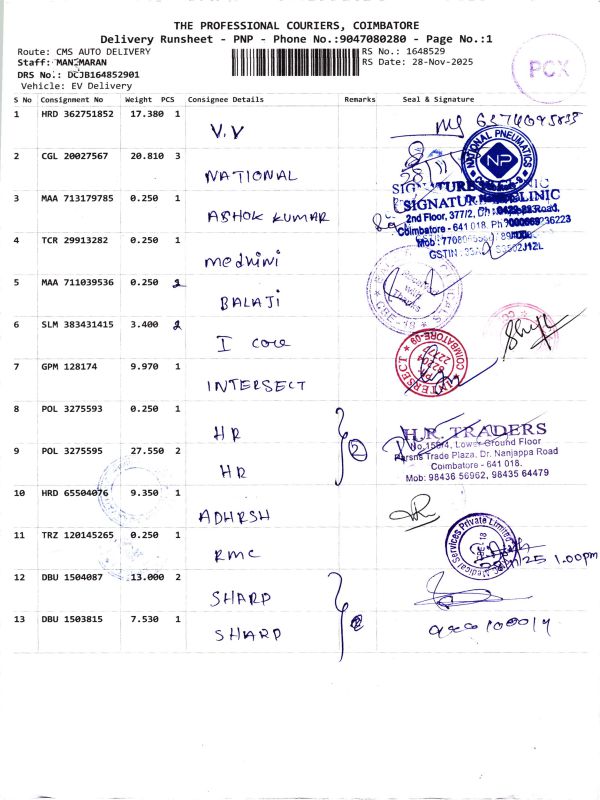 THE PROFESSIONAL COURIERS, COIMBATORE
Delivery Runsheet - PNP - Phone No.:9047080280 - Page No.:1
Route: CMS AUTO DELIVERY
RS No.: 1648529
Staff: MANIMARAN
RS Date: 28-Nov-2025
DRS No.: DCJB164852901
Vehicle: EV Delivery
PCX
S No Consignment No Weight PCS Consignee Details Remarks Seal & Signature
1 HRD 362751852 17.380 1
V.V
2 CGL 20027567 20.810 3
NATIONAL
NATIONAL PNEUMATICS
NP
3 MAA 713179785 0.250 1
ASHOK KUMAR
SIGNATURE CLINIC
2nd Floor, 377/2,
Coimbatore - 641 018.
4 TCR 29913282 0.250 1
Medhini
5 MAA 711039536 0.250 2
BALAJI
Received With Thanks
6 SLM 383431415 3.400 2
I care
7 GPM 128174 9.970 1
INTERSECT
INTERSECT COIMBATORE-09
8 POL 3275593 0.250 1
HR
2
9 POL 3275595 27.550 2
HR
H.R. TRADERS
No.158/4, Lower Ground Floor
Parsns Trade Plaza, Dr. Nanjappa Road
Coimbatore - 641 018.
Mob: 98436 56962, 98435 64479
10 HRD 65504076 9.350 1
ADHRSH
11 TRZ 120145265 0.250 1
RMC
Medical Services Private Limited
1.00pm
12 DBU 1504087 13.000 2
SHARP
2
13 DBU 1503815 7.530 1
SHARP